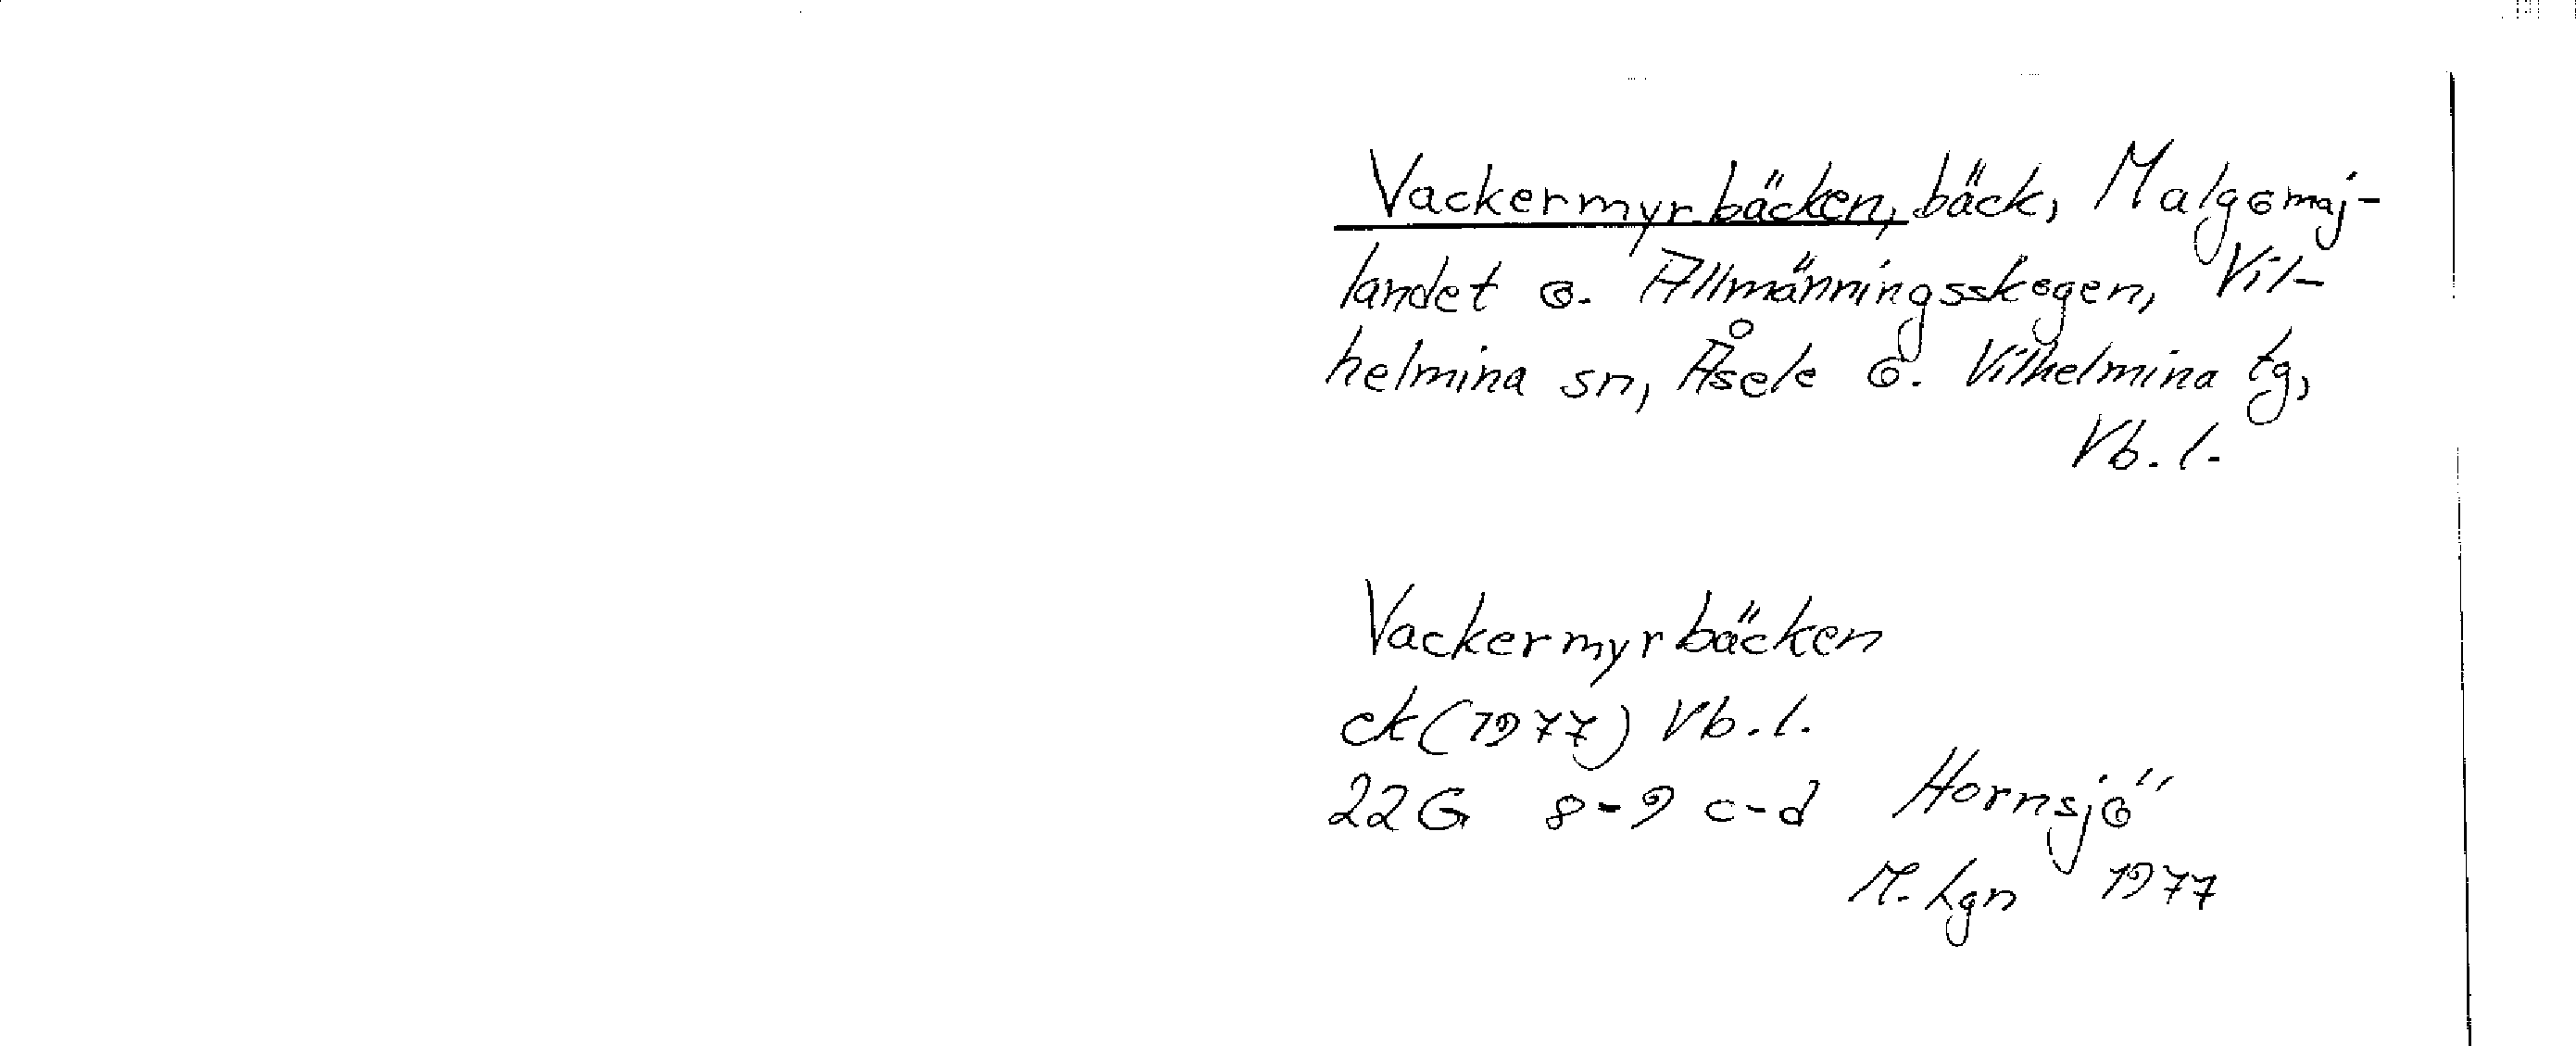 Vackermyrbäcken, bäck, Malgomaj-
landet o. Allmänningsskogen, Vil-
helmina sn, Åsele o. Vilhelmina tg,
Vb. l.
Vackermyrbäcken
ek (1977) Vb. l.
22G 8-9 c-d Hornsjö
M. Lgn 1977